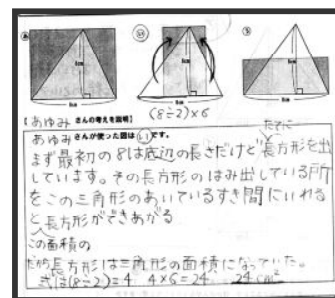 あ い う
6cm 6cm 6cm
8cm 8cm 8cm
(8÷2)×6
【あゆみさんの考えを説明】
あゆみさんが使った図は(い)です。
たてに
まず最初の8は底辺の長さだけど長方形を出
しています。その長方形のはみ出している所
をこの三角形のあいているすき間にいれる
と長方形ができあがる
この面積の
だから長方形は三角形の面積になっていた。
式は(8÷2)=4 4×6=24 24cm²